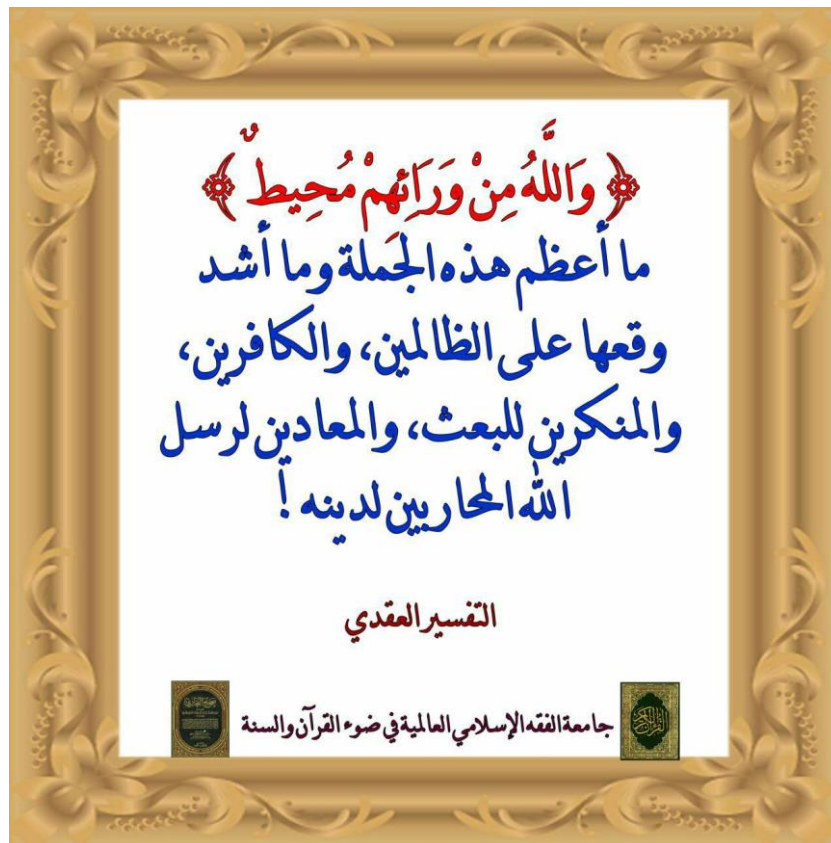 ﴿ وَاللَّهُ مِنْ وَرَائِهِمْ مُحِيطٌ ﴾
ما أعظم هذه الجملة وما أشد
وقعها على الظالمين، والكافرين،
والمنكرين للبعث، والمعادين لرسل
الله المحاربين لدينه !
التفسير العقدي
جامعة الفقه الإسلامي العالمية في ضوء القرآن والسنة
القرآن الكريم